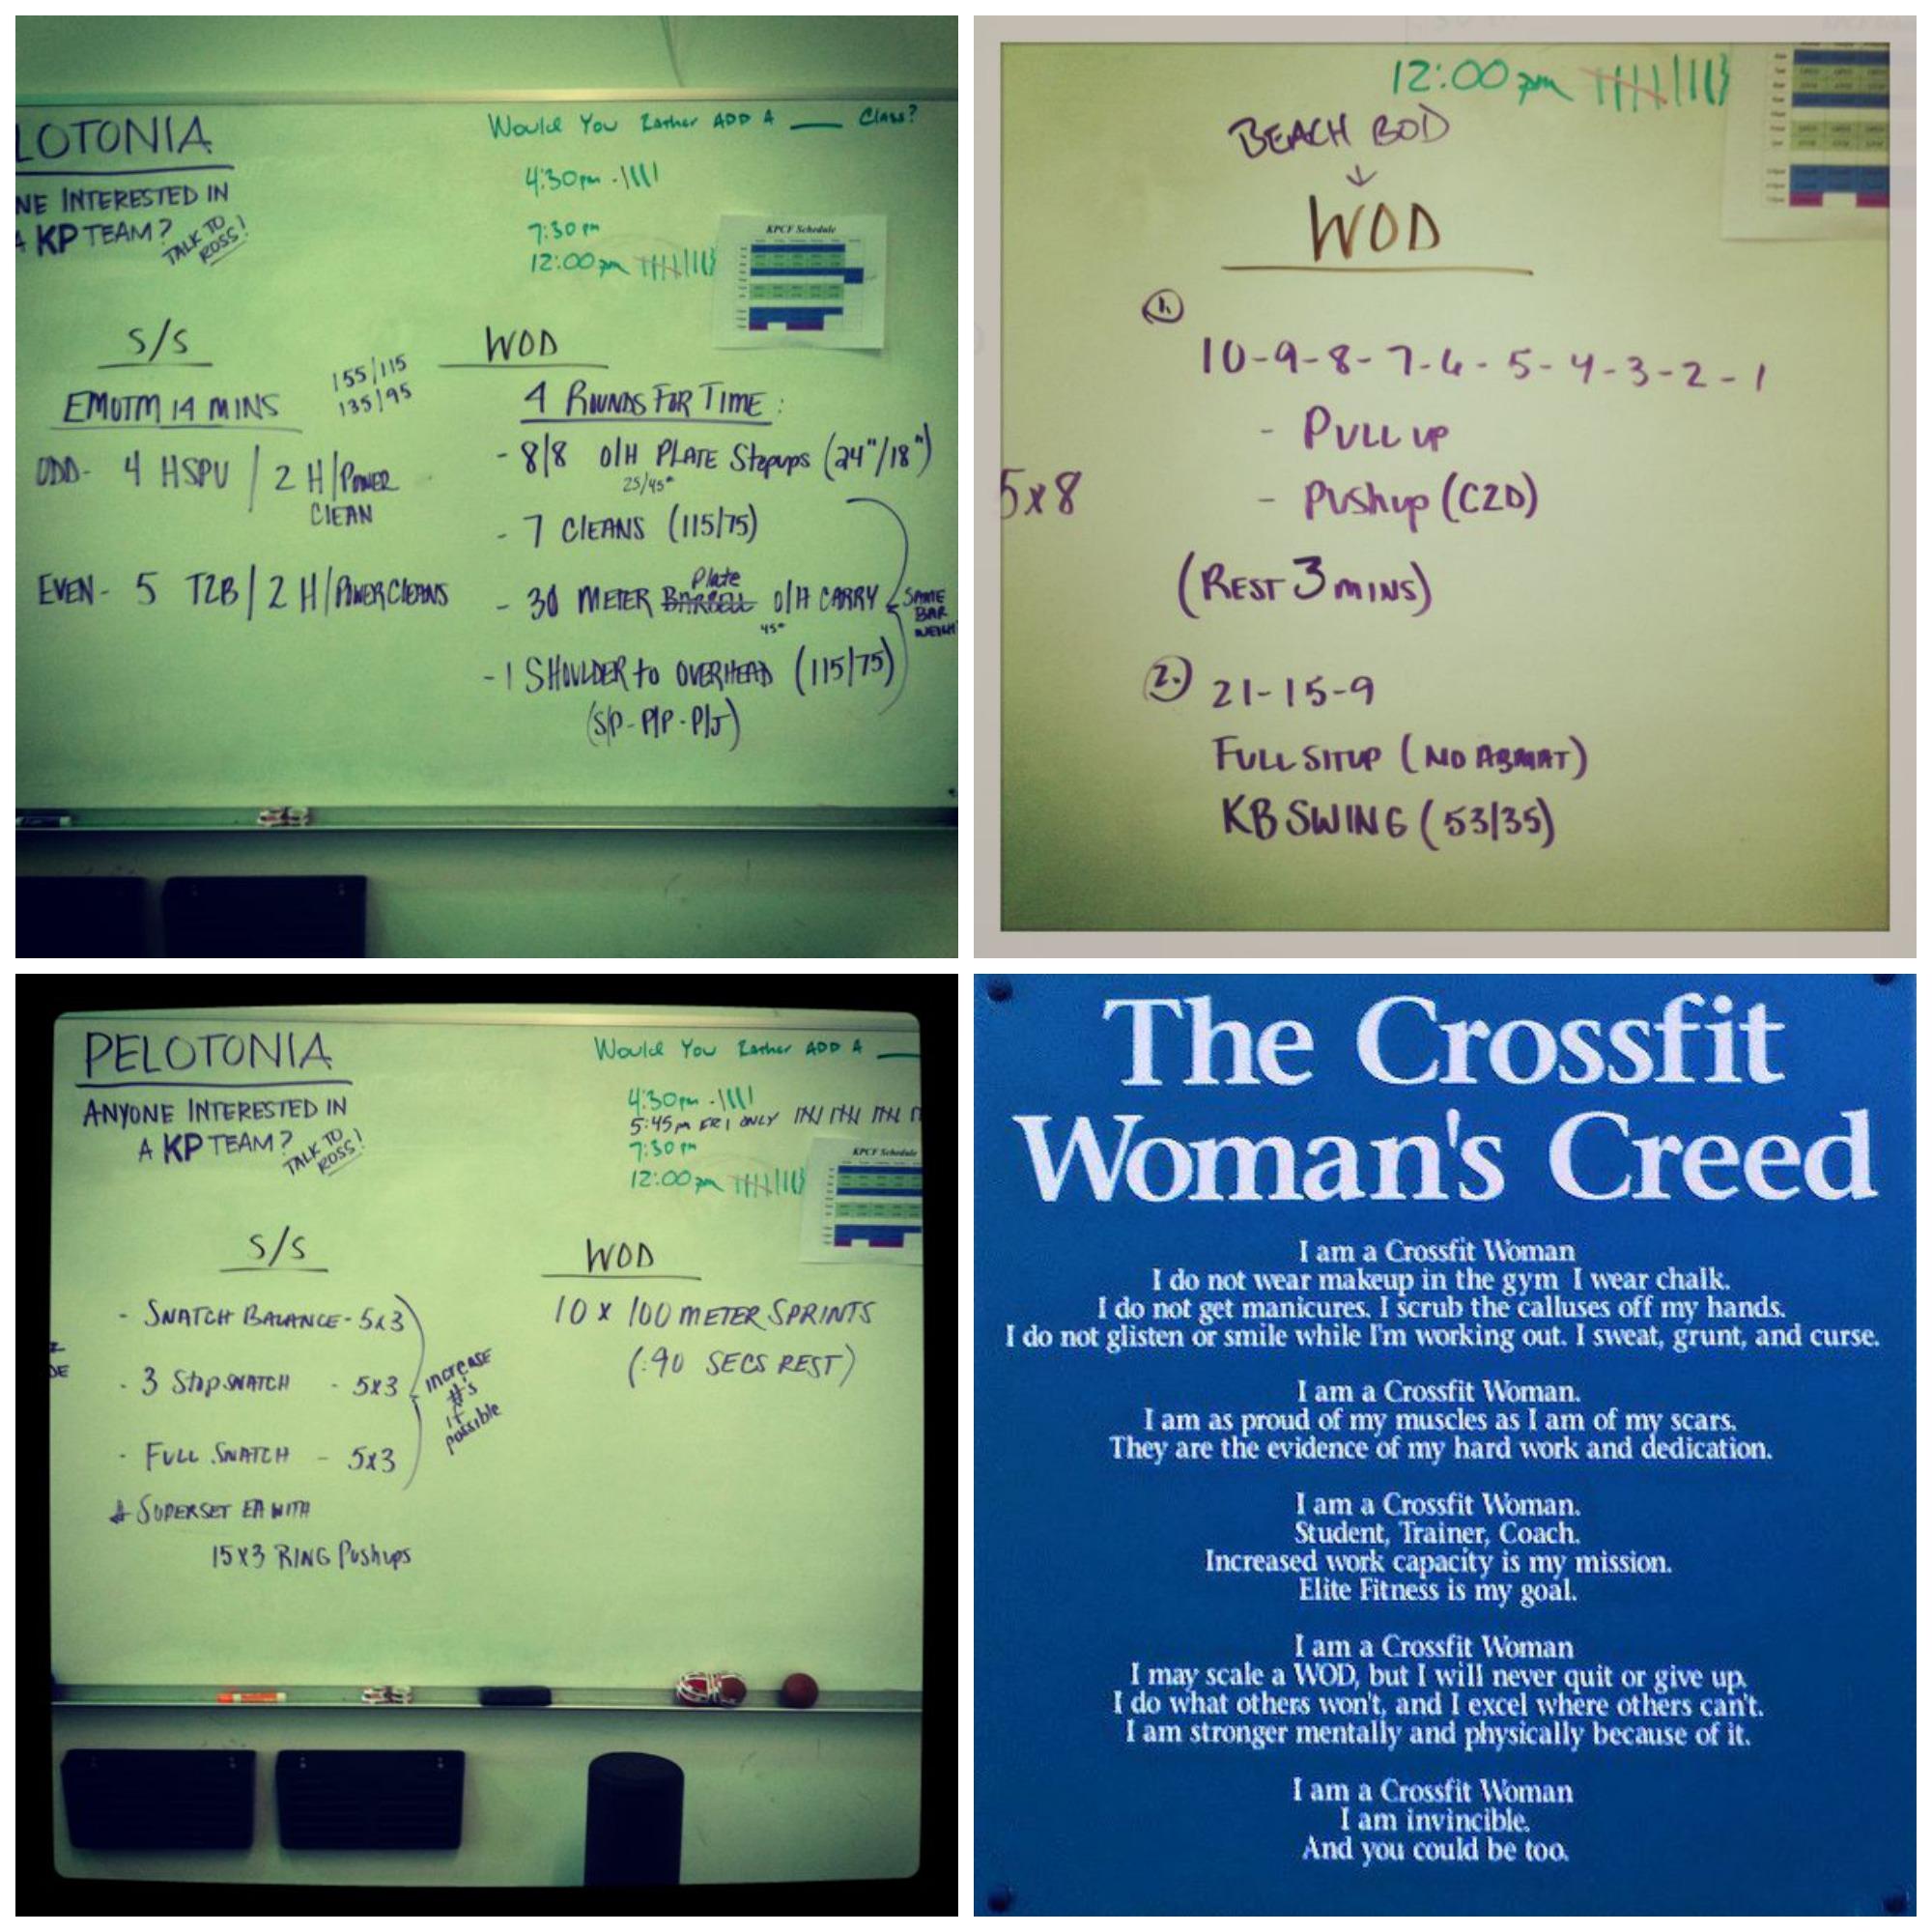 LOTONIA
NE INTERESTED IN
A KP TEAM?
TALK TO
ROSS!
Would You Rather ADD A ___ Class?
4:30pm - ||||
7:30pm
12:00pm
KPCF Schedule
S/S
EMOTM 14 MINS
155/115
135/95
ODD- 4 HSPU / 2 H/POWER
CLEAN
EVEN- 5 T2B / 2 H/POWERCLEANS
WOD
4 ROUNDS FOR TIME:
- 8/8 O/H PLATE Stepups (24"/18")
25/45#
- 7 CLEANS (115/75)
Plate
- 30 METER BARBELL O/H CARRY
45#
SAME
BAR
WEIGHT
- 1 SHOULDER to OVERHEAD (115/75)
(S/P - P/P - P/J)
12:00pm
BEACH BOD
↓
WOD
1.
10-9-8-7-6-5-4-3-2-1
- PULL UP
5x8
- PUSHUP (C2D)
(REST 3 MINS)
2. 21-15-9
FULL SITUP (NO ABMAT)
KB SWING (53/35)
PELOTONIA
ANYONE INTERESTED IN
A KP TEAM?
TALK TO
ROSS!
Would You Rather ADD A ___
4:30pm - ||||
5:45pm FRI ONLY
7:30pm
12:00pm
KPCF Schedule
S/S
- SNATCH BALANCE - 5x3
- 3 Stop SNATCH - 5x3
- FULL SNATCH - 5x3
INCREASE
#'s
if
possible
* SUPERSET EA WITH
15x3 RING Pushups
WOD
10 x 100 METER SPRINTS
(:90 SECS REST)
The Crossfit
Woman's Creed
I am a Crossfit Woman
I do not wear makeup in the gym I wear chalk.
I do not get manicures. I scrub the calluses off my hands.
I do not glisten or smile while I'm working out. I sweat, grunt, and curse.
I am a Crossfit Woman.
I am as proud of my muscles as I am of my scars.
They are the evidence of my hard work and dedication.
I am a Crossfit Woman.
Student, Trainer, Coach.
Increased work capacity is my mission.
Elite Fitness is my goal.
I am a Crossfit Woman
I may scale a WOD, but I will never quit or give up.
I do what others won't, and I excel where others can't.
I am stronger mentally and physically because of it.
I am a Crossfit Woman
I am invincible.
And you could be too.